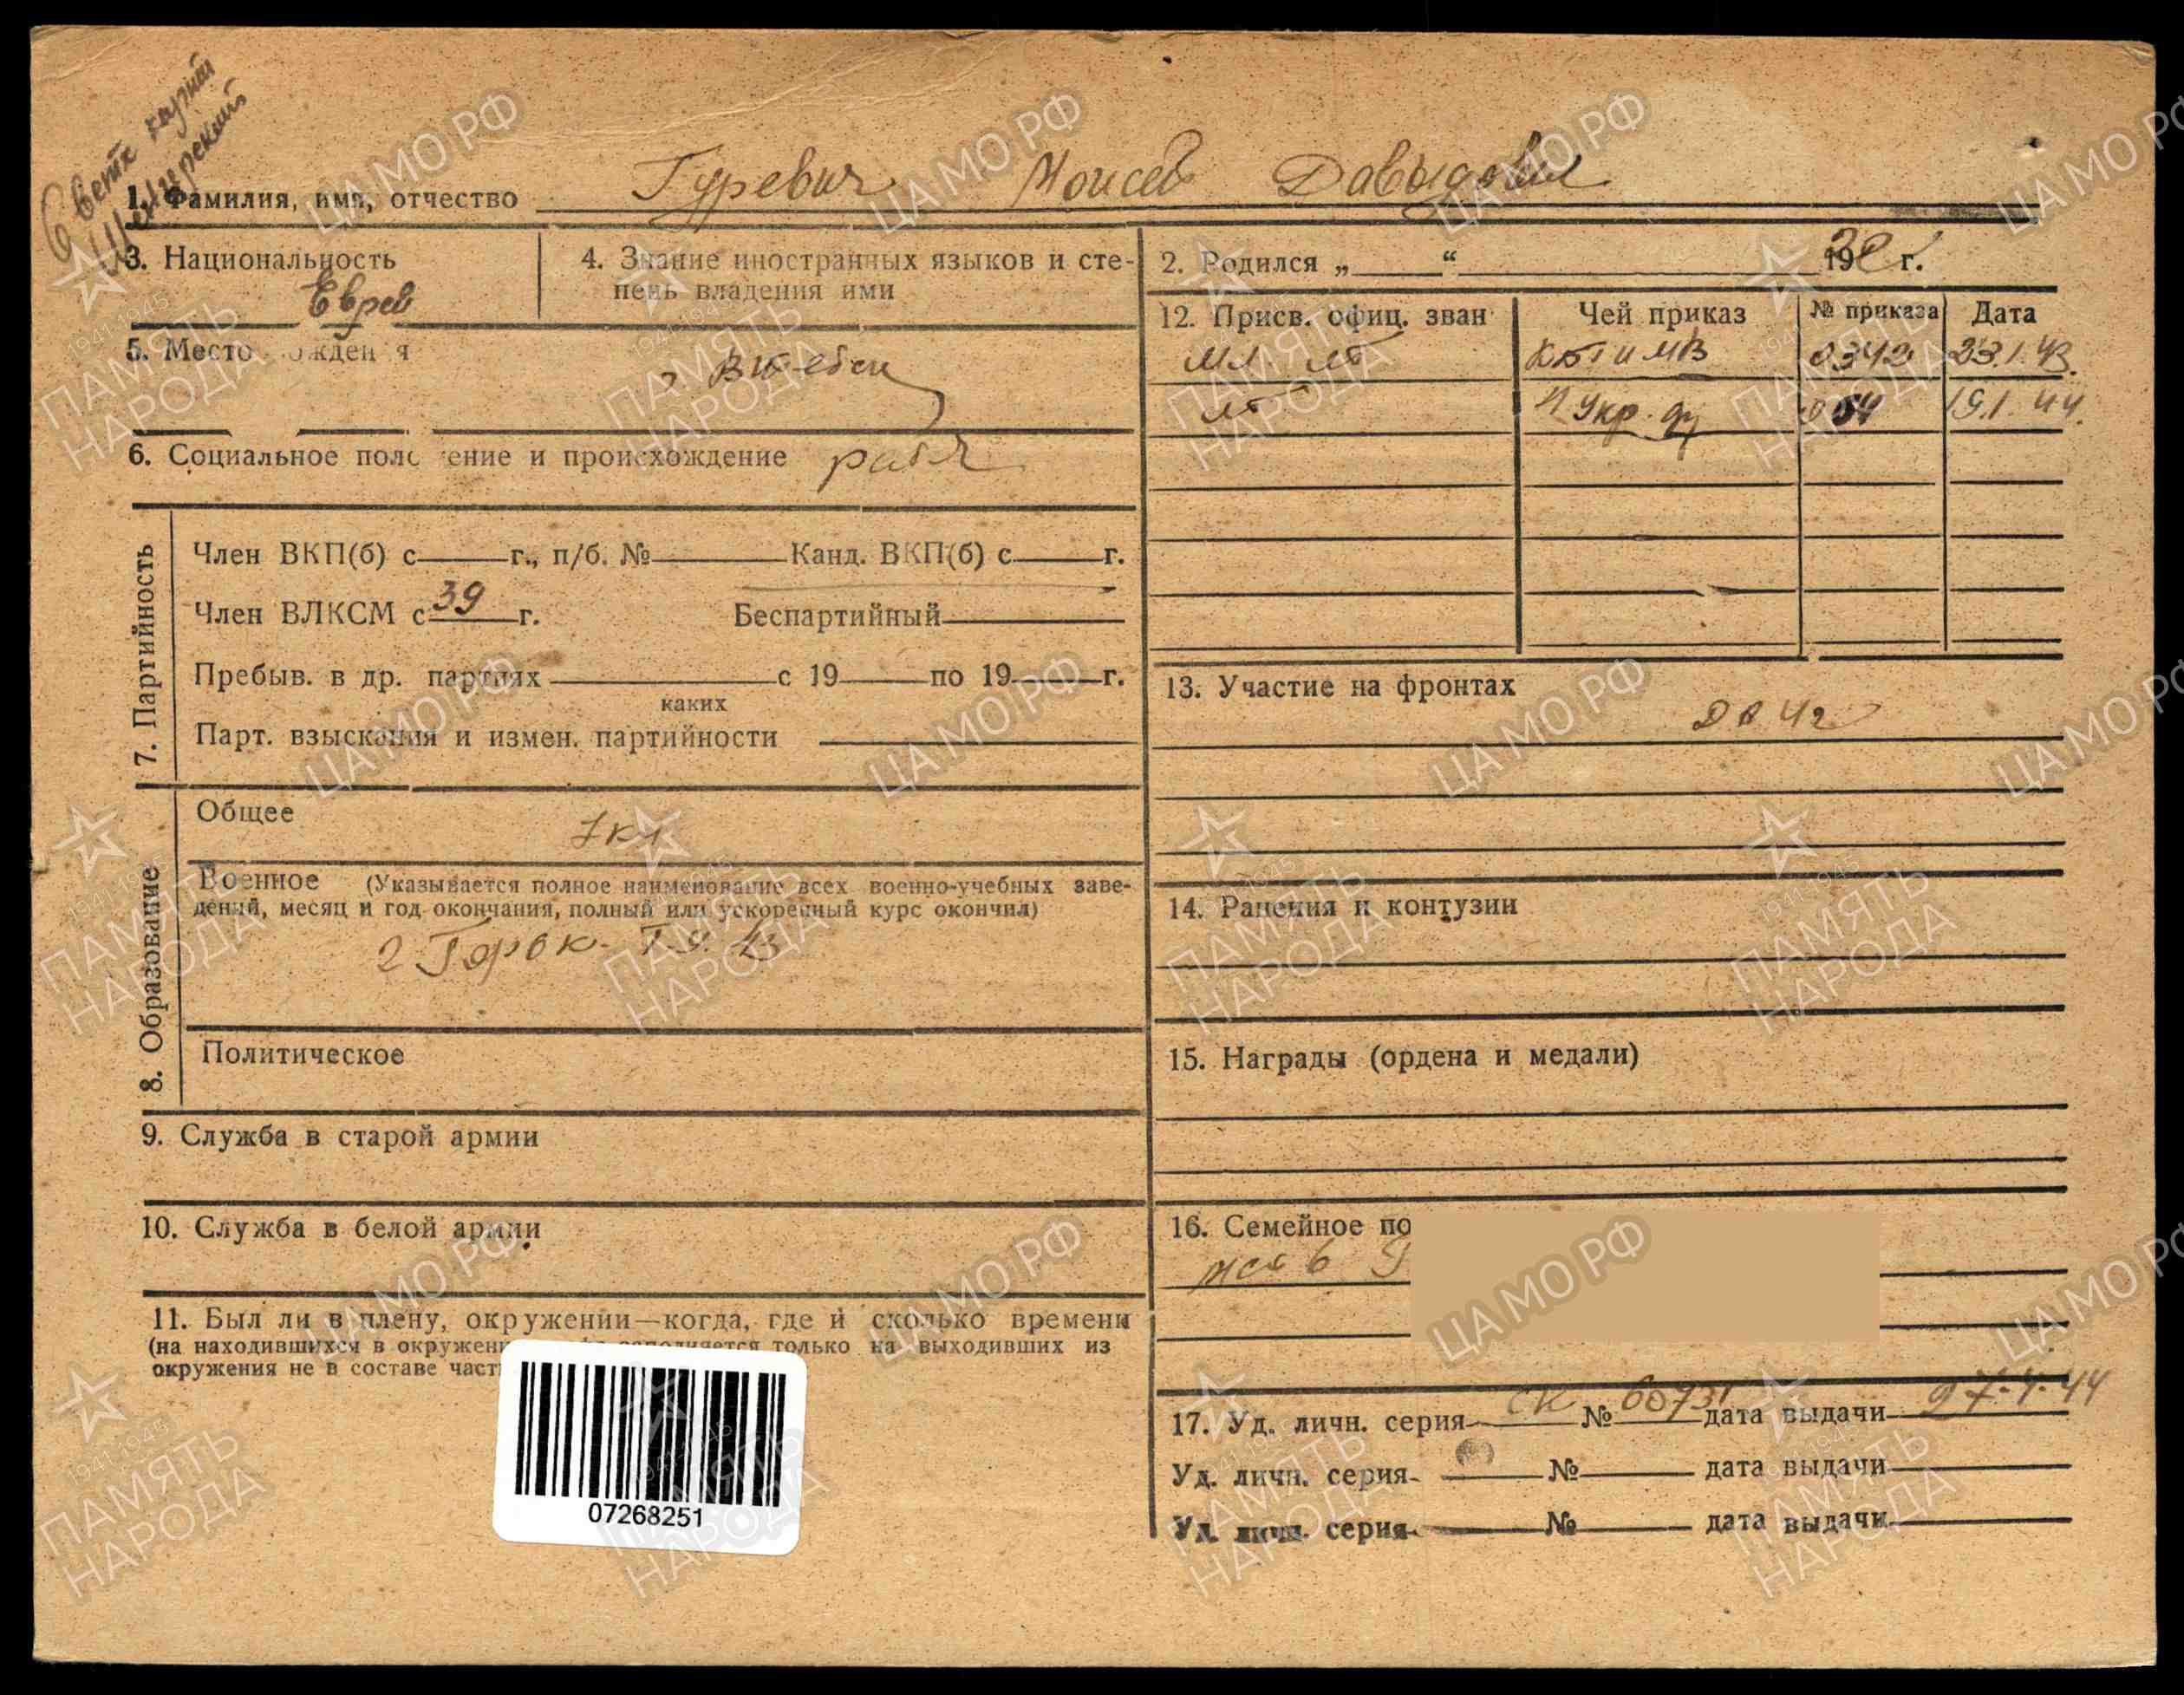 1. Фамилия, имя, отчество Гуревич Моисей Давыдович
3. Национальность
Еврей
4. Знание иностранных языков и сте-
пень владения ими
2. Родился „ “ 19 г.
5. Место рождения
г Витебск
6. Социальное положение и происхождение рабч
7. Партийность
Член ВКП(б) с г., п/б. № Канд. ВКП(б) с г.
Член ВЛКСМ с 39 г. Беспартийный
Пребыв. в др. партиях с 19 по 19 г.
каких
Парт. взыскания и измен. партийности
8. Образование
Общее
7 кл
Военное (Указывается полное наименование всех военно-учебных заве-
дений, месяц и год окончания, полный или ускоренный курс окончил)
2 Горьк. Т.У. 43
Политическое
9. Служба в старой армии
10. Служба в белой армии
11. Был ли в плену, окружении—когда, где и сколько времени
(на находившихся в окружении заполняется только на выходивших из
окружения не в составе част
07268251
12. Присв. офиц. зван Чей приказ № приказа Дата
мл. лт КБТ и МВ 0342 23.1.43.
лт 4 Укр. ф 064 19.1.44.
13. Участие на фронтах
14. Ранения и контузии
15. Награды (ордена и медали)
16. Семейное по
17. Уд. личн. серия СК № 60731 дата выдачи 27.4.44
Уд. личн. серия № дата выдачи
Уд. личн. серия № дата выдачи
ЦАМО.РФ
ПАМЯТЬ
НАРОДА
1941-1945